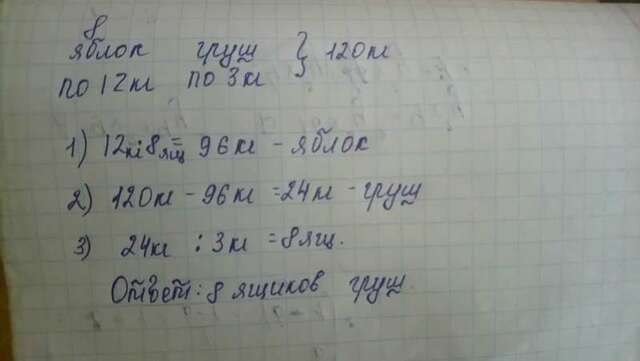 8
яблок груш } 120кг
по 12кг по 3кг
1) 12кг·8ящ = 96кг - яблок
2) 120кг - 96кг = 24кг - груш
3) 24кг : 3кг = 8 ящ.
Ответ: 8 ящиков груш.